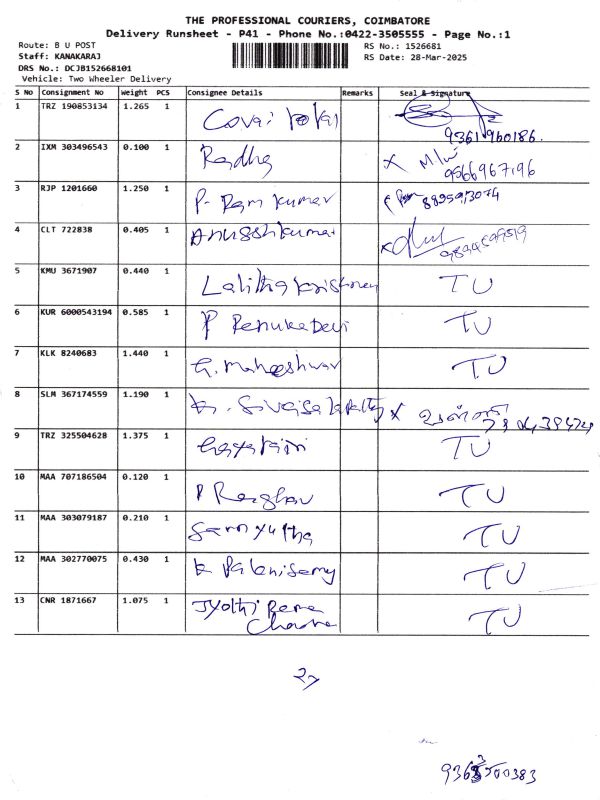 THE PROFESSIONAL COURIERS, COIMBATORE
Delivery Runsheet - P41 - Phone No.:0422-3505555 - Page No.:1
Route: B U POST RS No.: 1526681
Staff: KANAKARAJ RS Date: 28-Mar-2025
DRS No.: DCJB152668101
Vehicle: Two Wheeler Delivery
S No Consignment No Weight PCS Consignee Details Remarks Seal & Signature
1 TRZ 190853134 1.265 1 Covai
9361960186
2 IXM 303496543 0.100 1 Radha X
9566967196
3 RJP 1201660 1.250 1 P. Ram kumar
8895913074
4 CLT 722838 0.405 1
5 KMU 3671907 0.440 1 Lalitha TU
6 KUR 6000543194 0.585 1 P Renuka Devi TU
7 KLK 8240683 1.440 1 G. Maheshwar TU
8 SLM 367174559 1.190 1 K. X
9 TRZ 325504628 1.375 1 Gayatri TU
10 MAA 707186504 0.120 1 Raghav TU
11 MAA 303079187 0.210 1 Samyutha TU
12 MAA 302770075 0.430 1 K Palanisamy TU
13 CNR 1871667 1.075 1 Jyothi Rama TU